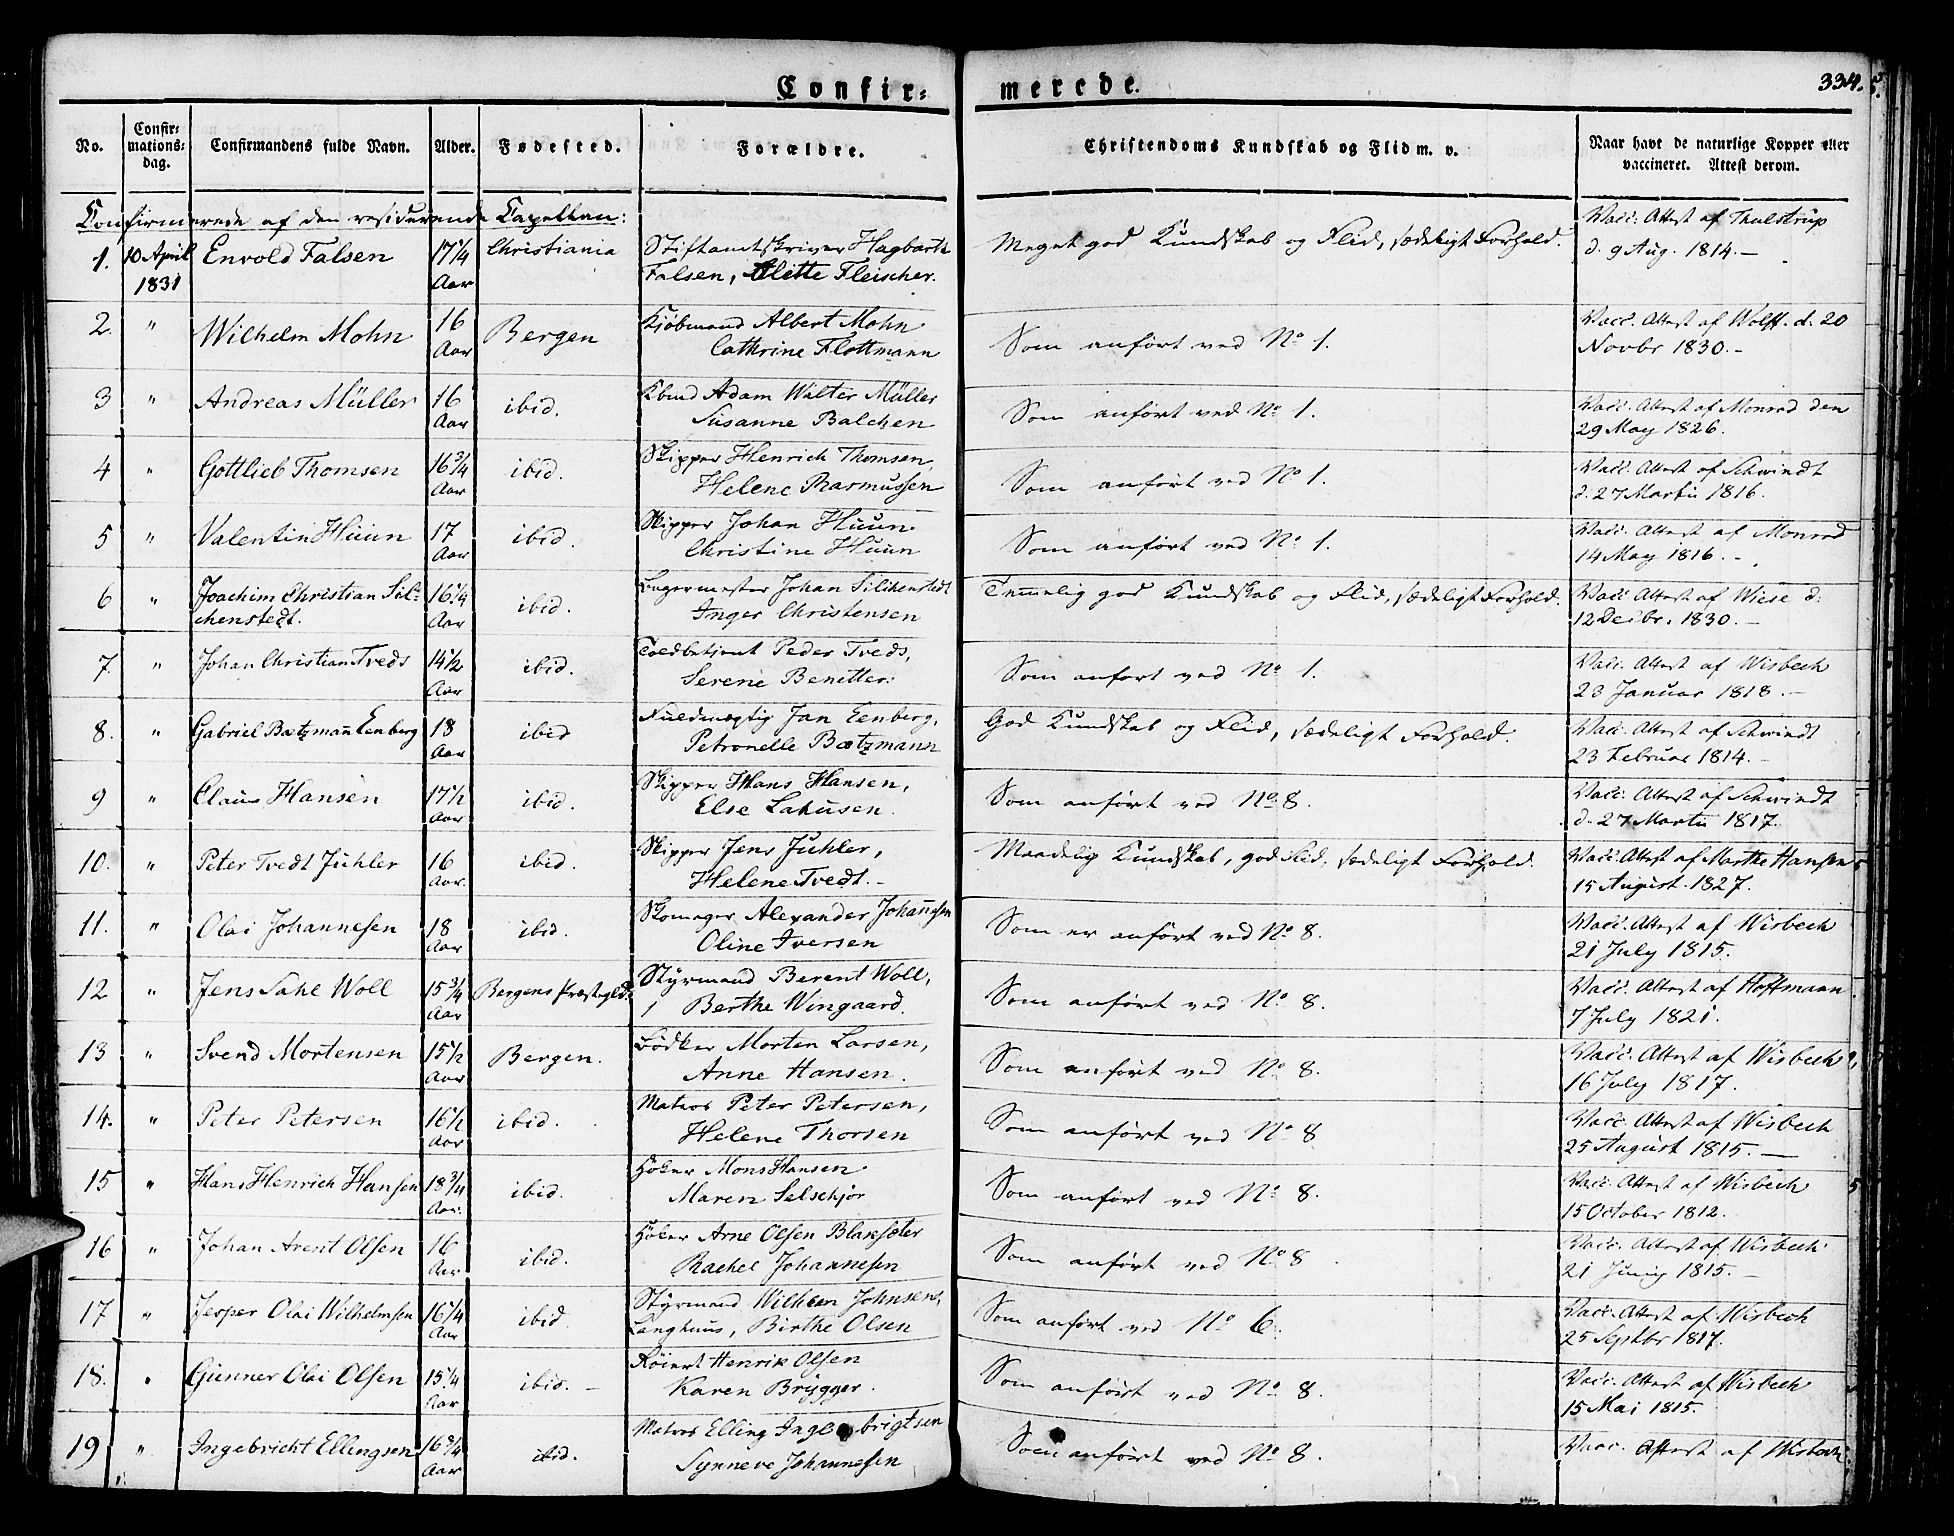 Confir= merede. 334.
No. Confir=mations=dag. Confirmandens fulde Navn. Alder. Fødested. Forældre. Christendoms Kundskab og Flid m. v. Naar havt de naturlige Kopper eller vaccineret. Attest derom.
Confirmerede af den residerende Capellan:
1. 10 April 1831 Envold Falsen 17 1/4 Aar Christiania Stiftamtskriver Hagbarth Falsen, Alitte Fleischer. Meget god Kundskab og Flid, sædeligt Forhold. Vacc: Attest af Thulstrup d. 9 Aug. 1814.—
2. " Wilhelm Mohn 16 Aar Bergen Kjøbmand Albert Mohn Cathrine Flottmann Som anført ved No 1. Vacc. Attest af Wolff. d. 20 Novbr 1830.-
3 " Andreas Müller 16 Aar ibid. Kbmd Adam Walter Müller Susanne Balchen Som anført ved No 1. Vacc. Attest af Monrad den 29 May 1826.
4 " Gottlieb Thomsen 16 3/4 Aar ibid. Skipper Henrich Thomsen, Helene Rasmussen Som anført ved No 1. Vacc. Attest af Schwindt d. 27 Martii 1816.
5 " Valentin Huun 17 Aar ibid. Skipper Johan Huun. Christine Huun Som anført ved No 1. Vacc. Attest af Monrad 14 May 1816.-
6 " Joachim Christian Sil=chenstedt. 16 1/4 Aar ibid. Lagermester Johan Silchenstedt Inger Christensen Temmelig god Kundskab og Flid, sædeligt Forhold. Vacc Attest af Wiese d. 12 Decbr. 1830.—
7. " Johan Christian Tveds 14 1/2 Aar ibid. Toldbetjent Peder Tveds, Serene Benetter: Som anført ved No 1. Vacc. Attest af Wisbech 23 Januar 1818.—
8. " Gabriel Bætzmañ Eenberg 18 Aar ibid Fuldmægtig Jan Eenberg, Petronelle Bætzmann God Kundskab og Flid, sædeligt Forhold. Vacc. Attest af Schwindt 23 Februar 1814.—
9 " Claus Hansen 17 1/2 Aar ibid. Skipper Hans Hansen, Else Lahusen. Som anført ved No 8. Vacc. Attest af Schwindt d. 27 Martii 1817.
10. " Peter Tvedt Juhler 16 Aar. ibid. Skipper Jens Juhler, Helene Tvedt.- Maadelig Kundskab, god Flid, sædeligt Forhold. Vacc. Attest af Marthe Hansen 15 August. 1827.
11. " Olai Johannesen 18 Aar ibid. Skomager Alexander Johañesen Oline Iversen Som er anført ved No 8. Vacc. Attest af Wisbech 21 July 1815.
12 " Jens Sahl Woll 15 3/4 Aar Bergens Præstegld. Styrmand Berent Woll, Berthe Wingaard. Som anført ved No 8. Vacc. Attest af Hoffmann 7 July 1821.
13 " Svend Mortensen 15 1/2 Aar Bergen. Bødker Morten Larsen, Anne Hansen. Som anført ved No 8. Vacc. Attest af Wisbech 16 July 1817.
14. " Peter Petersen 16 1/2 Aar ibid. Matros Peter Petersen, Helene Thorsen Som anført ved No 8 Vacc. Attest af Wisbech 25 August 1815.—
15 " Hans Henrich Hansen 18 3/4 Aar. ibid. Høker Mons Hansen Maren Selschjør Som anført ved No 8. Vacc. Attest af Wisbech 15 October 1812.
16 " Johan Arent Olsen 16 Aar ibid. Høker Arne Olsen Blaksæter Rachel Johannesen Som anført ved No 8 Vacc. Attest af Wisbech 21 Juny 1815.—
17 " Jesper Olai Wilhelmsen 16 1/4 Aar ibid. Styrmand Wilhem Johnsen, Langhuus, Birthe Olsen Som anført ved No 6. Vacc. Attest af Wisbech 25 Septbr 1817.
18. " Gunner Olai Olsen 15 1/4 Aar ibid.- Røiert Henrik Olsen Karen Brygger. Som anført ved No 8. Vacc. Attest af Wisbech 15 Mai 1815.
19 " Ingebricht Ellingsen 16 3/4 Aar ibid. Matros Elling Ingebrigtsen Synneve Johannesen Som anført ved No 8. Vacc. Attest af Wisbech